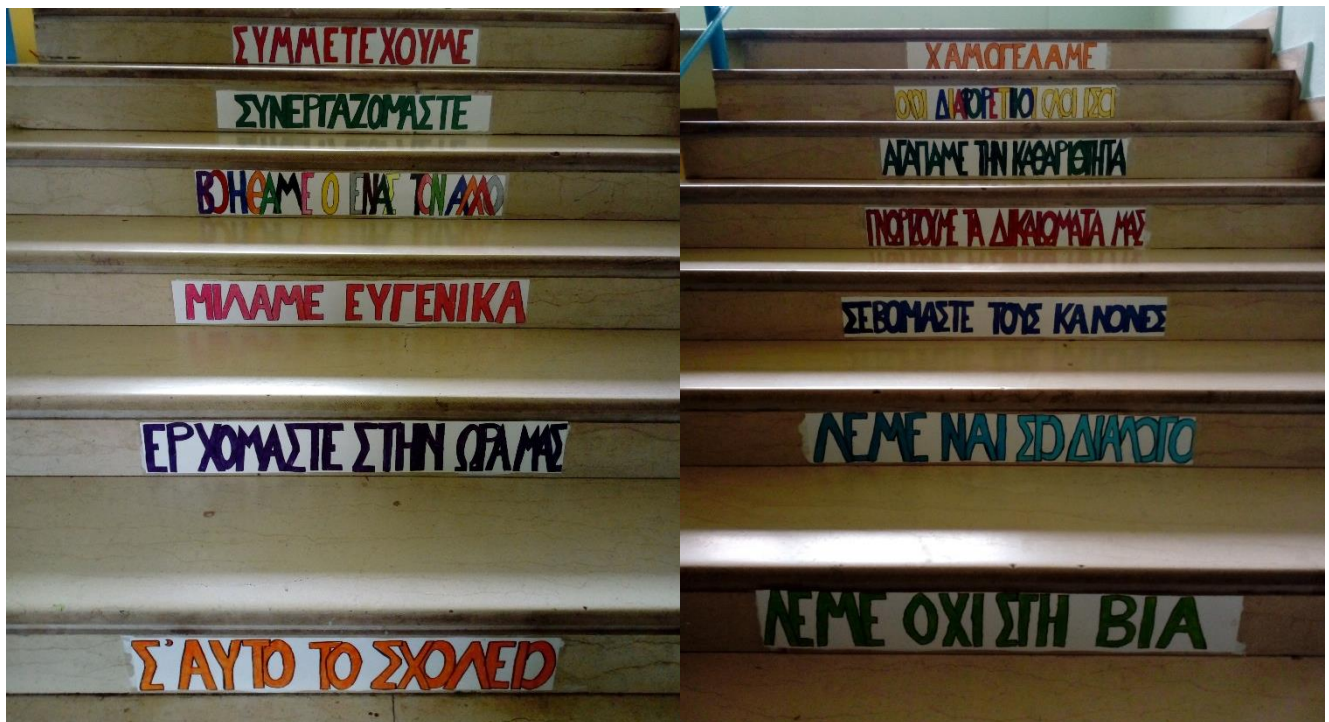 ΣΥΜΜΕΤΕΧΟΥΜΕ
ΣΥΝΕΡΓΑΖΟΜΑΣΤΕ
ΒΟΗΘΑΜΕ Ο ΕΝΑΣ ΤΟΝ ΑΛΛΟ
ΜΙΛΑΜΕ ΕΥΓΕΝΙΚΑ
ΕΡΧΟΜΑΣΤΕ ΣΤΗΝ ΩΡΑ ΜΑΣ
Σ' ΑΥΤΟ ΤΟ ΣΧΟΛΕΙΟ
ΧΑΜΟΓΕΛΑΜΕ
ΟΛΟΙ ΔΙΑΦΟΡΕΤΙΚΟΙ ΟΛΟΙ ΙΣΟΙ
ΑΓΑΠΑΜΕ ΤΗΝ ΚΑΘΑΡΙΟΤΗΤΑ
ΓΝΩΡΙΖΟΥΜΕ ΤΑ ΔΙΚΑΙΩΜΑΤΑ ΜΑΣ
ΣΕΒΟΜΑΣΤΕ ΤΟΥΣ ΚΑΝΟΝΕΣ
ΛΕΜΕ ΝΑΙ ΣΤΟ ΔΙΑΛΟΓΟ
ΛΕΜΕ ΟΧΙ ΣΤΗ ΒΙΑ